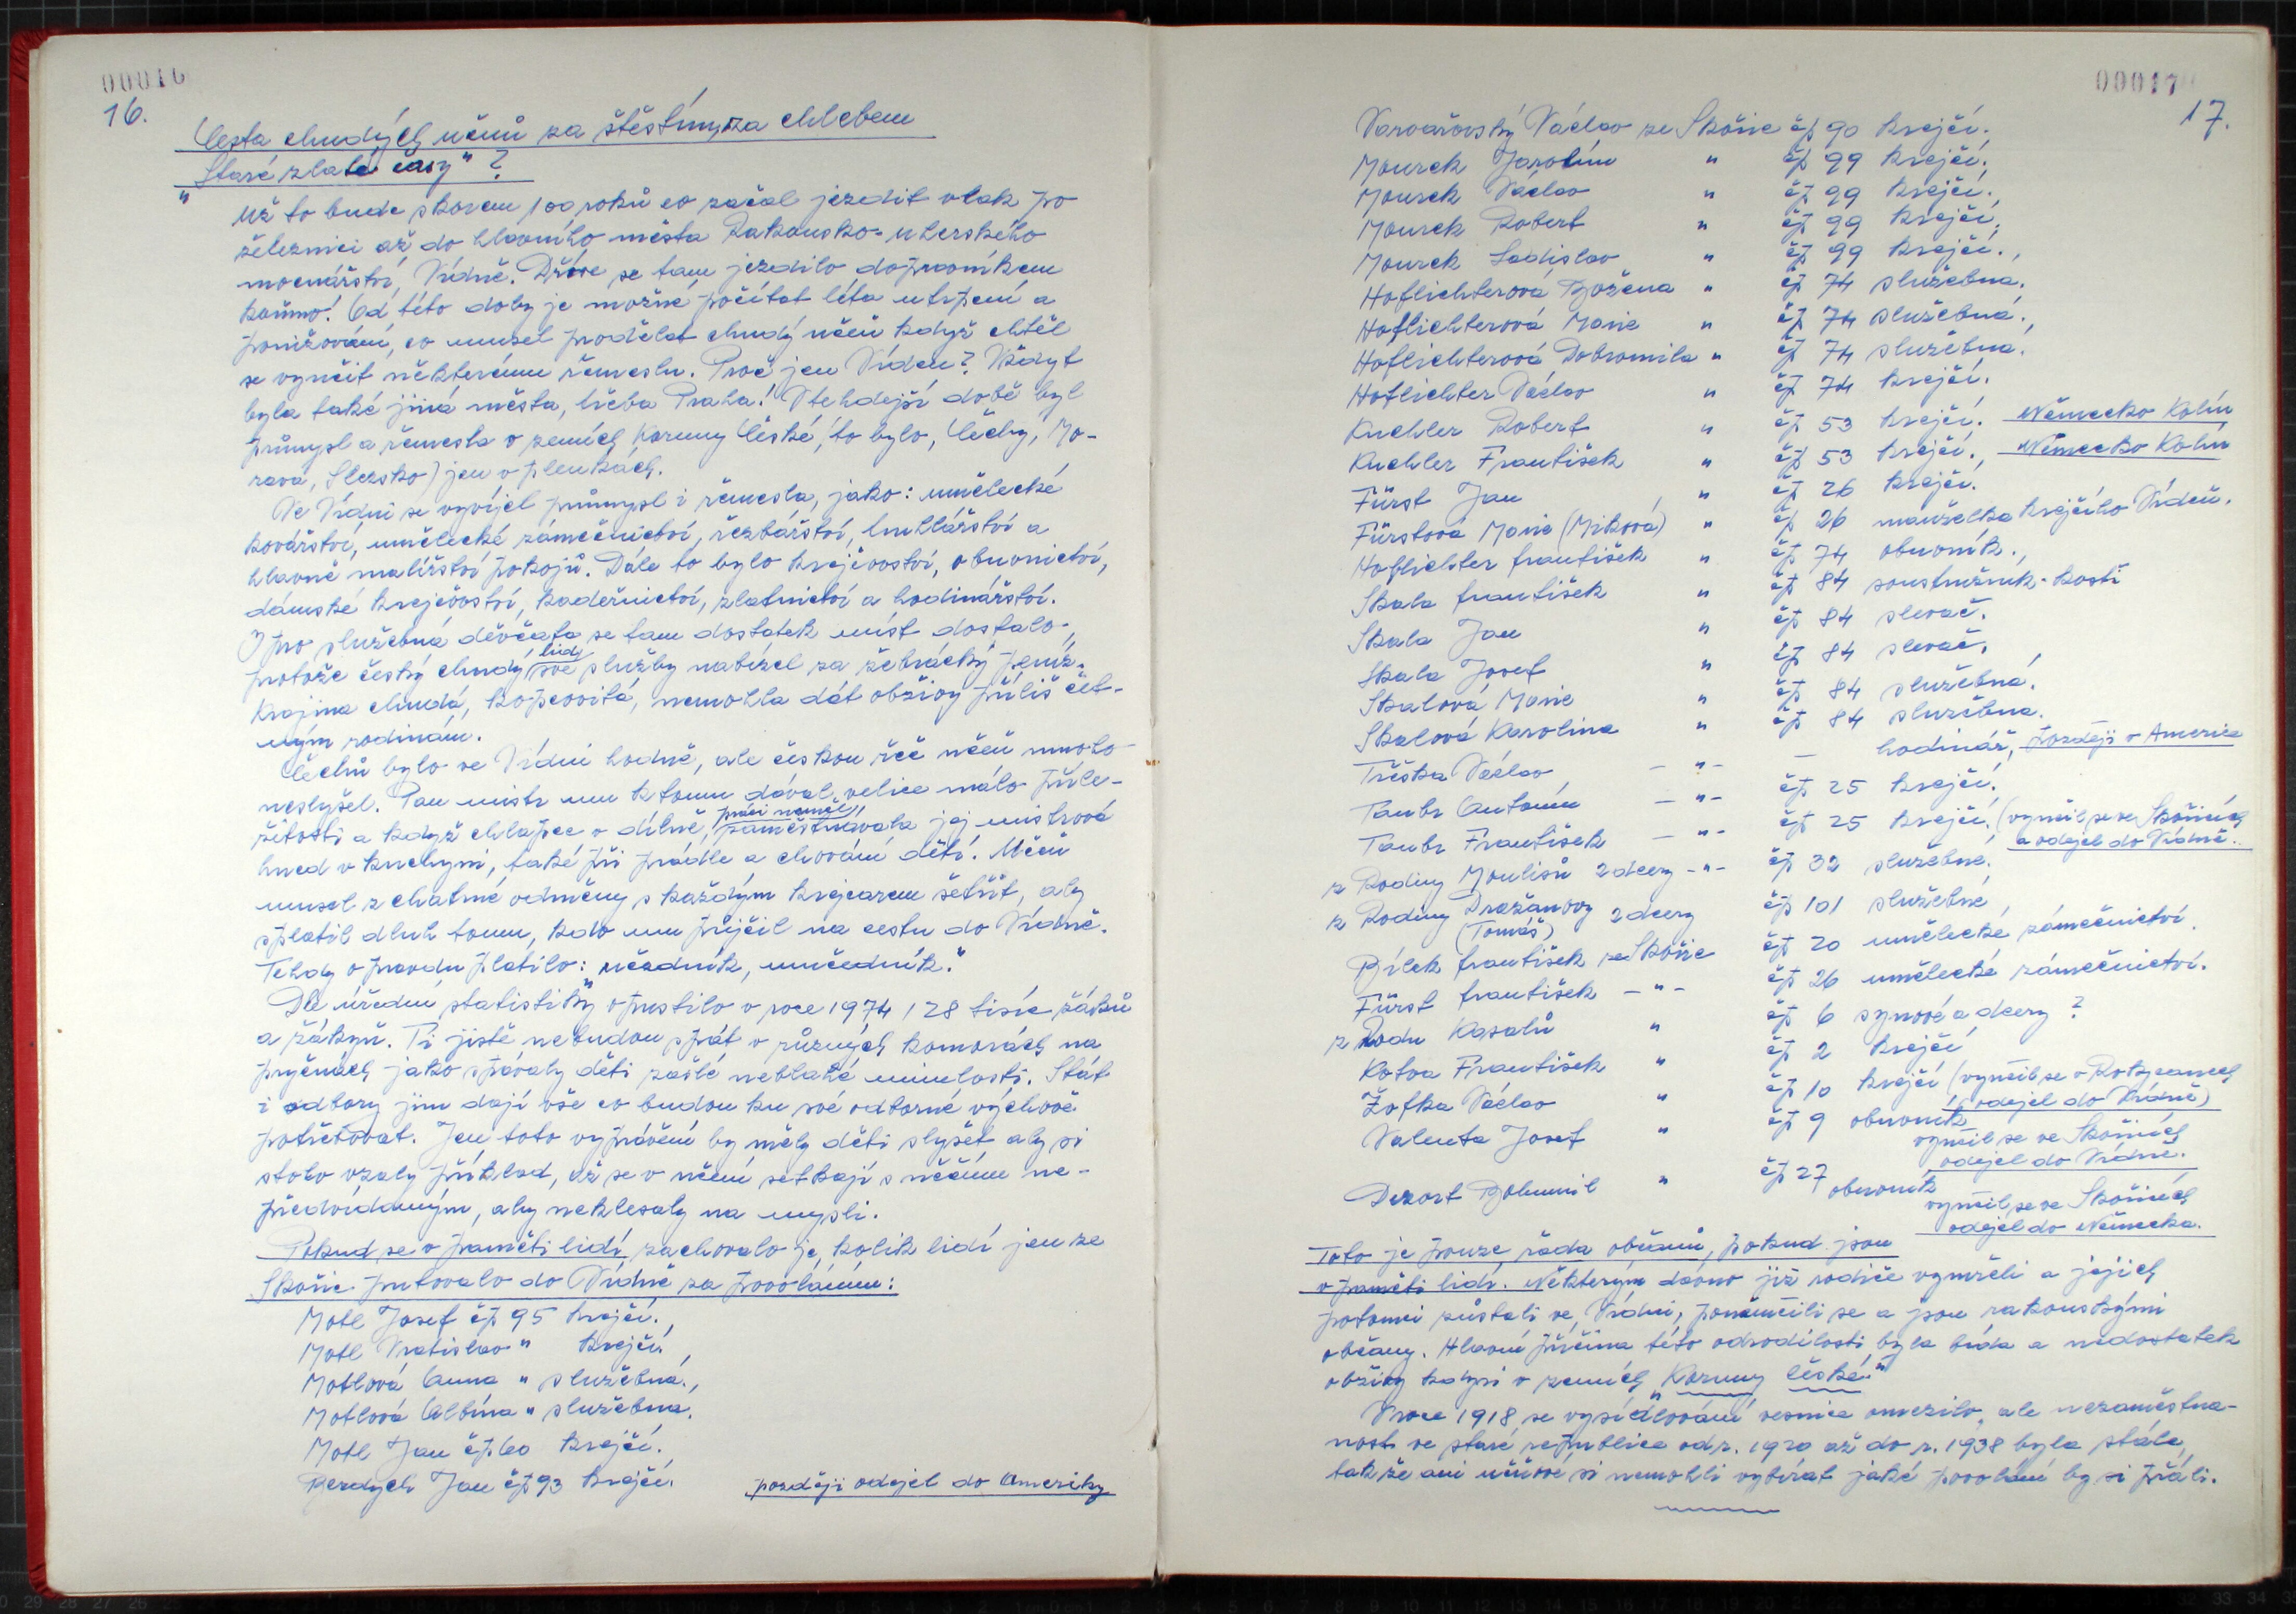 00016
16.
Cesta chudých učňů za štěstím, za chlebem
"Staré zlaté časy" ?
Už to bude skorem 100 roků co začal jezdit vlak po
železnici až do hlavního města Rakousko-uherského
mocnářství, Vídně. Dříve se tam jezdilo dopravníkem
koňmo! Od této doby je možné počítat léta utrpení a
ponižování, co musel prodělat chudý učeň když chtěl
se vyučit některému řemeslu. Proč jen Vídeň? Vždyt
byla také jiná města, třeba Praha! V tehdejší době byl
průmysl a řemesla v zemích Koruny České, (to bylo, Čechy, Mo-
rava, Slezsko) jen v plenkách.
Ve Vídni se vyvíjel průmysl i řemesla, jako: umělecké
kovářství, umělecké zámečnictví, řezbářství, truhlářství a
hlavně malířství pokojů. Dále to bylo krejčovství, obuvnictví,
dámské krejčovství, kadeřnictví, zlatnictví a hodinářství.
I pro služebná děvčata se tam dostatek míst dostalo,
protože český chudý lid své služby nabízel za žebrácký peníz.
Krajina chudá, kopcovitá, nemohla dát obživy příliš čet-
ným rodinám.
Čechů bylo ve Vídni hodně, ale českou řeč učeň mnoho
neslyšel. Pan mistr mu k tomu dával velice málo příle-
žitosti a když chlapec v dílně, práci neměl, zaměstnávala jej mistrová
hned v kuchyni, také při prádle a chování dětí. Učeň
musel z chatrné odměny s každým krejcarem šetřit, aby
splatil dluh tomu, kdo mu půjčil na cestu do Vídně.
Tehdy opravdu platilo: "učedník, mučedník."
Dle úřední statistiky opustilo v roce 1974, 128 tisíc žáků
a žákyň. Ti jistě nebudou spát v různých komorách na
pryčnách jako spávaly děti zašlé neblahé minulosti. Stát
i odbory jim dají vše co budou ku své odborné výchově
potřebovat. Jen toto vyprávění by měly děti slyšet aby si
z toho vzaly příklad, až se v učení setkají s něčím ne-
předvídaným, aby neklesaly na mysli.
Pokud se v paměti lidí zachovalo je, kolik lidí jen ze
Skořic putovalo do Vídně za povoláním:
Motl Josef čp 95 krejčí.,
Motl Vratislav " krejčí,
Motlová Anna " služebná.,
Motlová Albína " služebná.
Motl Jan čp 60 krejčí.
Berdych Jan čp 93 krejčí. později odejel do Ameriky
00017
17.
Varvařovský Václav ze Skořic čp 90 krejčí.
Mourek Jarolím " čp 99 krejčí.
Mourek Václav " čp 99 krejčí.
Mourek Robert " čp 99 krejčí.
Mourek Ladislav " čp 99 krejčí.,
Hoflichterová Božena " čp 74 služebna.
Hoflichterová Marie " čp 74 služebná.,
Hoflichterová Dobromila " čp 74 služebna.
Hoflichter Václav " čp 74 krejčí.
Kuchler Robert " čp 53 krejčí. Německo Kolín
Kuchler František " čp 53 krejčí., Německo Kolín
Fürst Jan " čp 26 krejčí.
Fürstová Marie (Miková) " čp 26 manželka krejčího Vídeň.
Hoflichter František " čp 74 obuvník.,
Skala František " čp 84 soustružník-kostí
Skala Jan " čp 84 slevač.
Skala Josef " čp 84 slevač.
Skalová Marie " čp 84 služebná.
Skalová Karolina " čp 84 služebna.
Tříska Václav - " - — hodinář, později v Americe
Taubr Antonín - " - čp 25 krejčí.
Taubr František - " - čp 25 krejčí. (vyučil se ve Skořicích
a odejel do Vídně.
z Rodiny Moulisů 2 dcery - " - čp 32 služebné.
z Rodiny Dražanovy 2 dcery čp 101 služebné,
(Tomáš)
Bílek František ze Skořic čp 20 umělecké zámečnictví.
Fürst František - " - čp 26 umělecké zámečnictví.
z Rodu Kasalů " čp 6 synové a dcery ?
Kotva František " čp 2 krejčí
Žofka Václav " čp 10 krejčí (vyučil se v Rokycanech
odejel do Vídně)
Valenta Josef " čp 9 obuvník
vyučil se ve Skořicích
odejel do Vídně.
Dezort Bohumil " čp 27 obuvník
vyučil se ve Skořicích
odejel do Německa.
Toto je pouze řada občanů, pokud jsou
v paměti lidí. Některým dávno již rodiče vymřeli a jejich
potomci zůstali ve Vídni, poněmčili se a jsou rakouskými
občany. Hlavní příčina této odrodilosti byla bída a nedostatek
obživy kdysi v zemích "Koruny české."
V roce 1918, se vysídlování vesnice omezilo, ale nezaměstna-
nost ve staré republice od r. 1920 až do r. 1938 byla stále,
takže ani učňové si nemohli vybírat jaké povolání by si přáli.